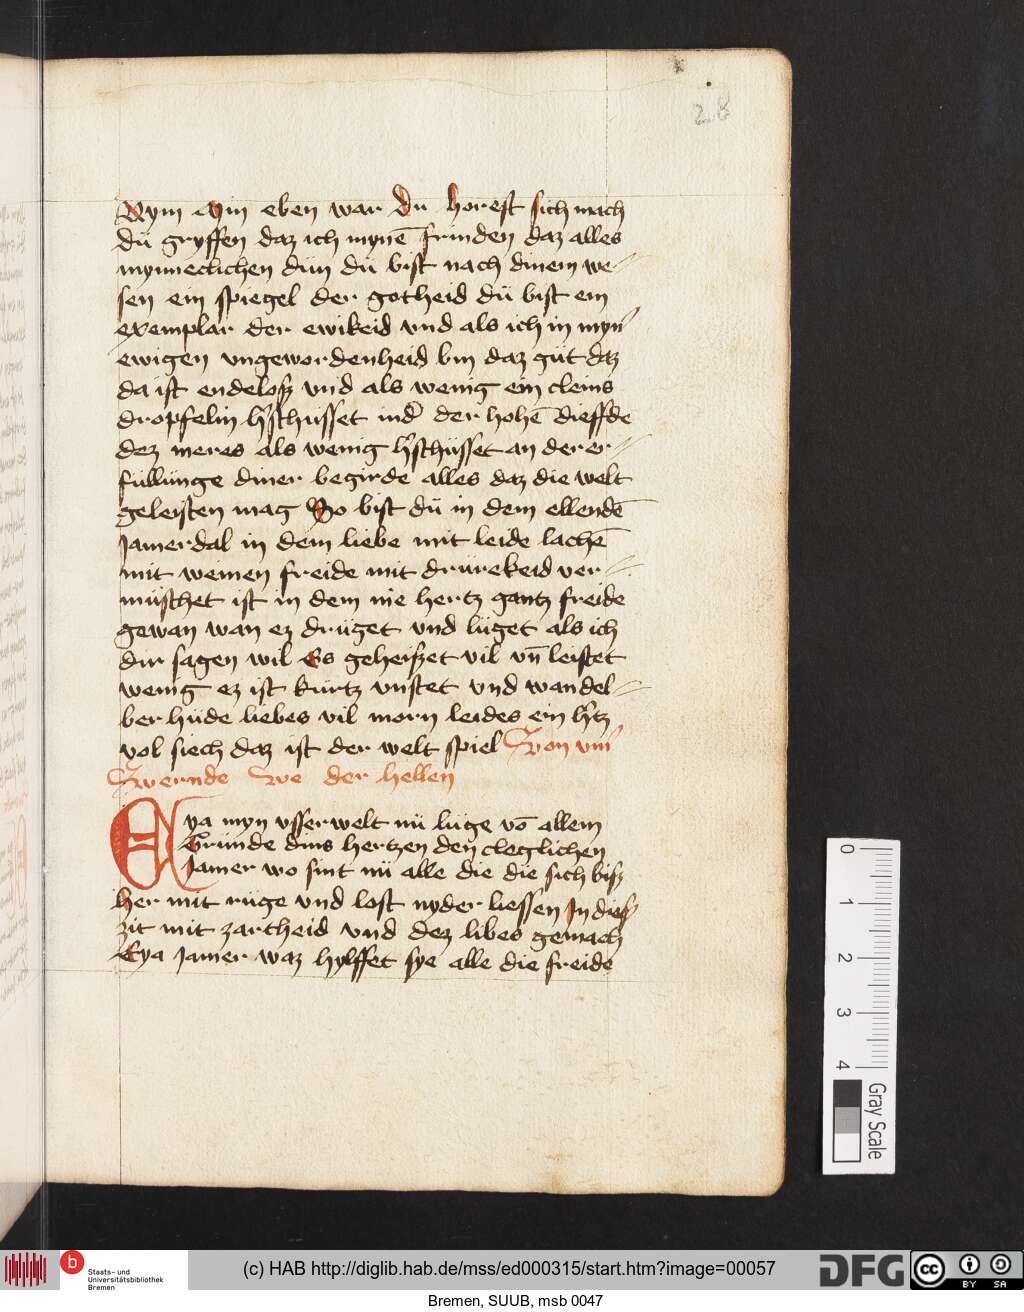 28
Nym min eben war du horest sich mach
dü gryffen daz ich mynē frinden daz alles
mynneclichen dün dü bist nach dinem we⸗
sen ein spiegel der gotheid dü bist ein
exemplar der ewikeid vnd als ich in myn̄
ewigen vngewordenheid bin daz güt daz
da ist endelosz vnd als wenig ein cleins
dropfelin h'schüsset in d' der hohē dieffde
dez meres als wenig h'schüsset an der er⸗
füllünge diner begirde alles daz die welt
geleisten mag So bist dü in dem ellendē
Jamerdal in dem liebe mit leide lachē
mit weinen freide mit drürekeid ver⸗
müschet ist in dem nie hertz gantz freide
gewan wan ez drüget vnd lüget als ich
dir sagen wil Es geheiszet vil vn̄ leistet
wenig ez ist kürtz vnstet vnd wandel⸗
ber hüde liebes vil morn leides ein h'tz
vol siech daz ist der welt spiel Von vm̄
Swernde We der hellen
Eya myn vsserwelt nü lüge vō allem
Gründe dins hertzen den cleglichen
Jamer wo sint nü alle die die sich bisz
her mit rüge vnd lost nyder liessen In dies'
zit mit zartheid vnd dez libes gemach
Eya Jamer waz hylffet sye alle die freide
0
1
2
3
4
Gray Scale
b
Staats- und
Universitätsbibliothek
Bremen
(c) HAB http://diglib.hab.de/mss/ed000315/start.htm?image=00057
DFG
cc
BY SA
Bremen, SUUB, msb 0047